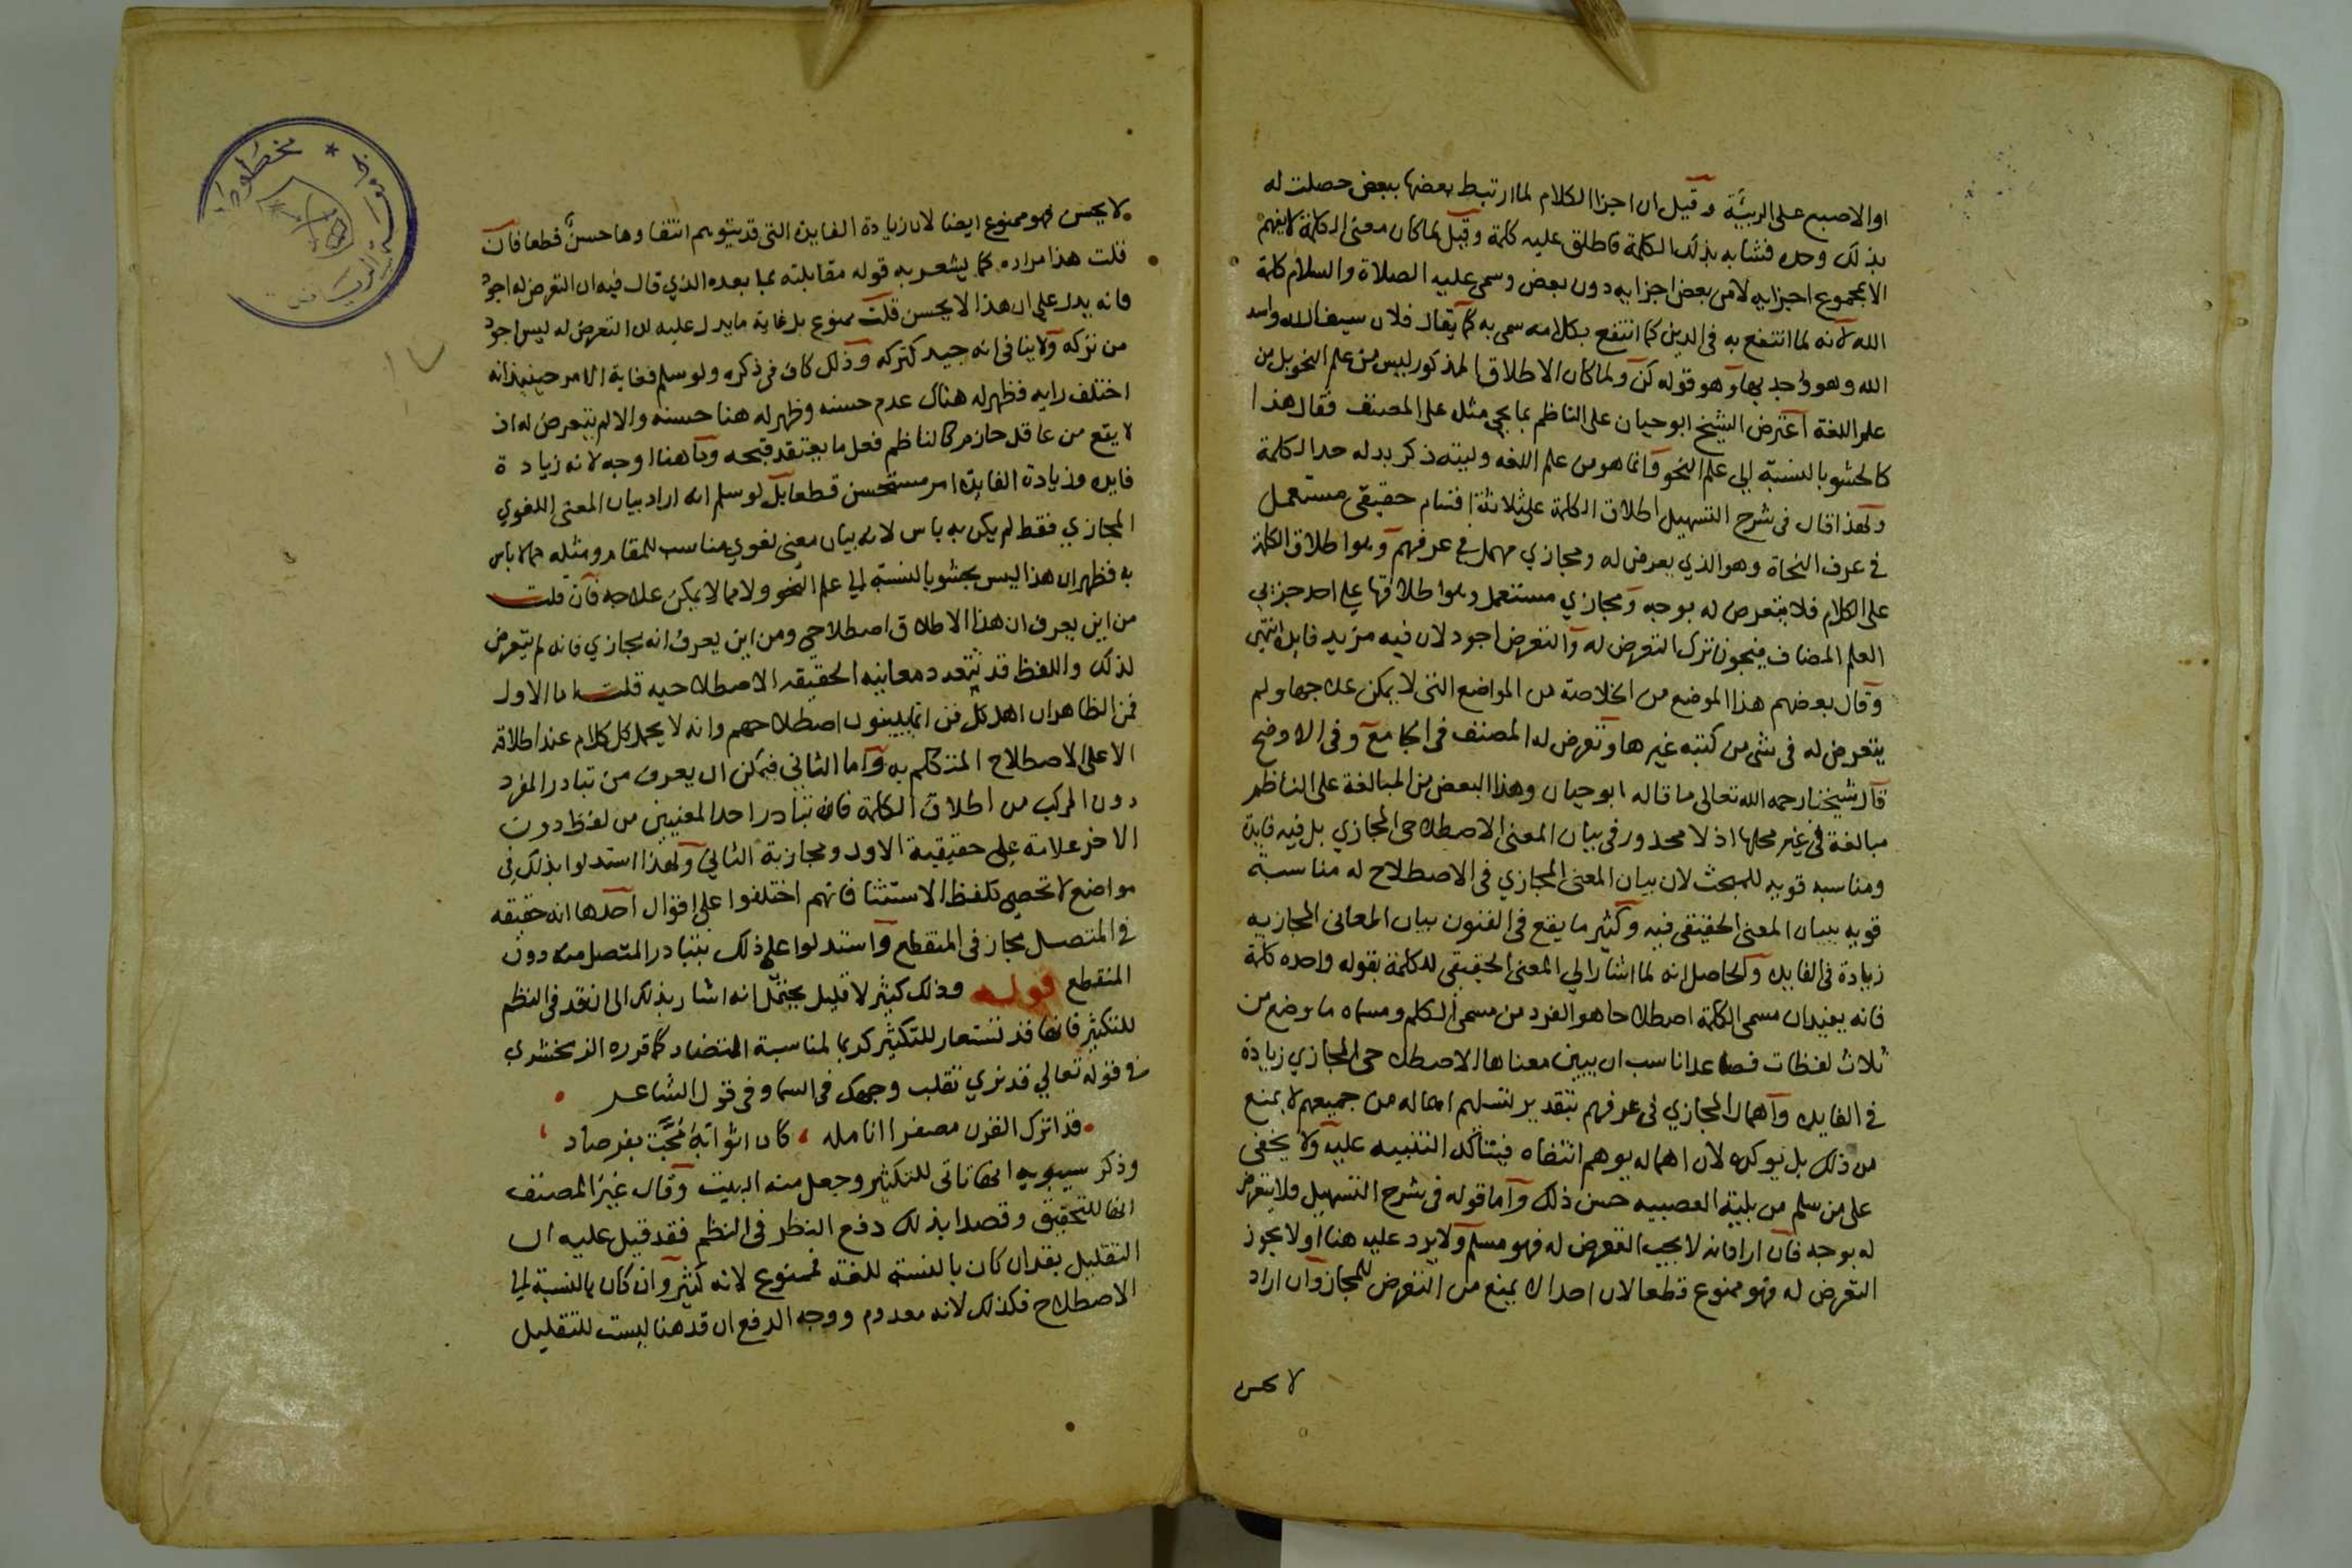 او الاصبع على الربيئة وقيل ان اجزا الكلام لما ارتبط بعضها ببعض حصلت له
بذلك وحده فشابه بذلك الكلمة فاطلق عليه كلمة وقيل لما كان معنى الكلمة لا يفهم
الا بمجموع اجزايه لا من بعض اجزايه دون بعض وسمى عليه الصلاة والسلام كلمة
الله لانه لما انتفع به في الدين كما انتفع بكلامه سمى به كما يقال فلان سيف الله واسد
الله وهو واحد بها وهو قوله كن ولما كان الاطلاق المذكور ليس من علم النحو بل من
علم اللغة اعترض الشيخ ابو حيان على الناظم بما يجي مثله على المصنف فقال هذا
كالحشو بالنسبة الى علم النحو وانما هو من علم اللغه وليته ذكر بدله حد الكلمة
ولهذا قال في شرح التسهيل اطلاق الكلمة على ثلاثة اقسام حقيقي مستعمل
في عرف النحاة وهو الذي يعرض له ومجازي مهمل في عرفهم وهو اطلاق الكلمة
على الكلام فلا يتعرض له بوجه ومجازي مستعمل وهو اطلاقها على احد جزئي
العلم المضاف فيجوز ترك التعرض له والتعرض اجود لان فيه مزيد فايدة انتهى
وقال بعضهم هذا الموضع من الخلاصة من المواضع التي لا يمكن علاجها ولم
يتعرض له في شي من كتبه غيرها وتعرض له المصنف في الجامع وفي الاوضح
قال شيخنا رحمه الله تعالى ما قاله ابو حيان وهذا البعض من المبالغة على الناظم
مبالغة في غير محلها اذ لا محذور في بيان المعنى الاصطلاحى المجازي بل فيه فايدة
ومناسبه قويه للبحث لان بيان المعنى المجازي في الاصطلاح له مناسبة
قويه ببيان المعنى الحقيقي فيه وكثير ما يقع في الفنون بيان المعاني المجازيه
زيادة في الفايده والحاصل انه لما اشار الي المعنى الحقيقي للكلمة بقوله واحده كلمة
فانه يفيد ان مسمى الكلمة اصطلاحا هو الفرد من مسمى الكلم ومسماه ما وضع من
ثلاث لفظات فصاعدا ناسب ان يبين معناها الاصطلاحى المجازي زيادة
في الفايده واهمال المجازي في عرفهم بتقدير تسليم اهماله من جميعهم لا يمنع
من ذلك بل يوكده لان اهماله يوهم انتفاه فيتاكد التنبيه عليه ولا يخفى
على من سلم من بلية العصبيه حسن ذلك واما قوله في شرح التسهيل فلا يتعرض
له بوجه فان اراد انه لا يجب التعرض له فهو مسلم ولا يرد عليه هنا او لا يجوز
التعرض له فهو ممنوع قطعا لان احدا لا يمنع من التعرض للمجاز وان اراد
لا يحسن
لا يحسن فهو ممنوع ايضا لان زيادة الفايدة التي قد يتوهم انتفاوها حسن قطعا فان
قلت هذا مراده كما يشعر به قوله مقابلته بما بعده الذي قال فيه ان التعرض له اجود
فانه يدل على ان هذا لا يحسن قلت ممنوع بل غاية ما يدل عليه ان التعرض له ليس اجود
من تركه ولا ينافى انه جيد كتركه وذلك كاف في ذكره ولو سلم فغاية الامر حينيذ انه
اختلف رايه فظهر له هناك عدم حسنه وظهر له هنا حسنه والا لم يتعرض له اذ
لا يقع من عاقل حازم كالناظم فعل ما يعتقد قبحه وما هنا اوجه لانه زيادة
فايده وزيادة الفايدة امر مستحسن قطعا بل لو سلم انه اراد بيان المعنى اللغوي
المجازي فقط لم يكن به باس لانه بيان معنى لغوي مناسب للمقام ومثله مما لا باس
به فظهر ان هذا ليس بحشو بالنسبة الى علم النحو ولا مما لا يمكن علاجه فان قلت
من اين يعرف ان هذا الاطلاق اصطلاحي ومن اين يعرف انه مجازي فانه لم يتعرض
لذلك واللفظ قد تتعدد معانيه الحقيقه الاصطلاحيه قلت اما الاول
فمن الظاهر ان اهل كل فن انما يبينون اصطلاحهم وانه لا يحمل كل كلام عند اطلاقه
الا على الاصطلاح المتكلم به واما الثاني فيمكن ان يعرف من تبادر المفرد
دون المركب من اطلاق الكلمة فان تبادر احد المعنيين من لفظ دون
الاخر علامة على حقيقية الاول ومجازية الثاني ولهذا استدلوا بذلك في
مواضع لا تحصى كلفظ الاستثنا فانهم اختلفوا على اقوال احدها انه حقيقه
في المتصل مجاز في المنقطع واستدلوا على ذلك بتبادر المتصل منه دون
المنقطع قوله وذلك كثير لا قليل يحتمل انه اشار بذلك الى ان قد في النظم
للتكثير فانها قد تستعار للتكثير كربما لمناسبة التضاد كما قرره الزمخشري
في قوله تعالي قد نري تقلب وجهك في السما وفي قول الشاعر
قد اترك القرن مصفرا انامله كان اثوابه مجت بفرصاد
وذكر سيبويه انها تاتى للتكثير وجعل منه البيت وقال غير المصنف
انها للتحقيق وقصدا بذلك دفع النظر في النظم فقد قيل عليه ان
التقليل بقد ان كان بالنسبه للغة فممنوع لانه كثير وان كان بالنسبة الى
الاصطلاح فكذلك لانه معدوم ووجه الدفع ان قد هنا ليست للتقليل